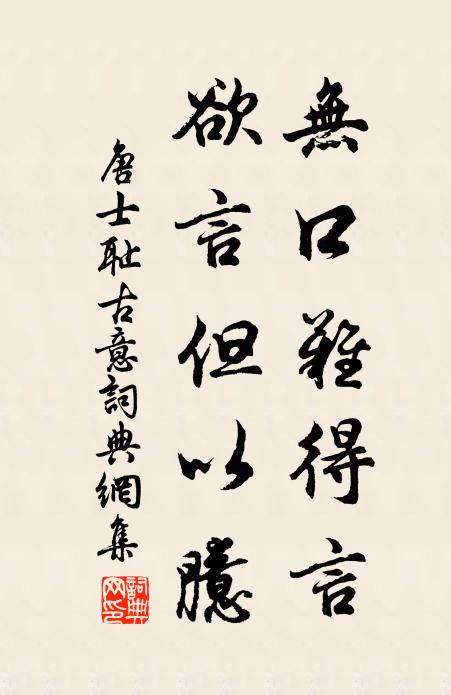 無口難得言
欲言但以臆
唐士耻古意詞典網集
詞典網印